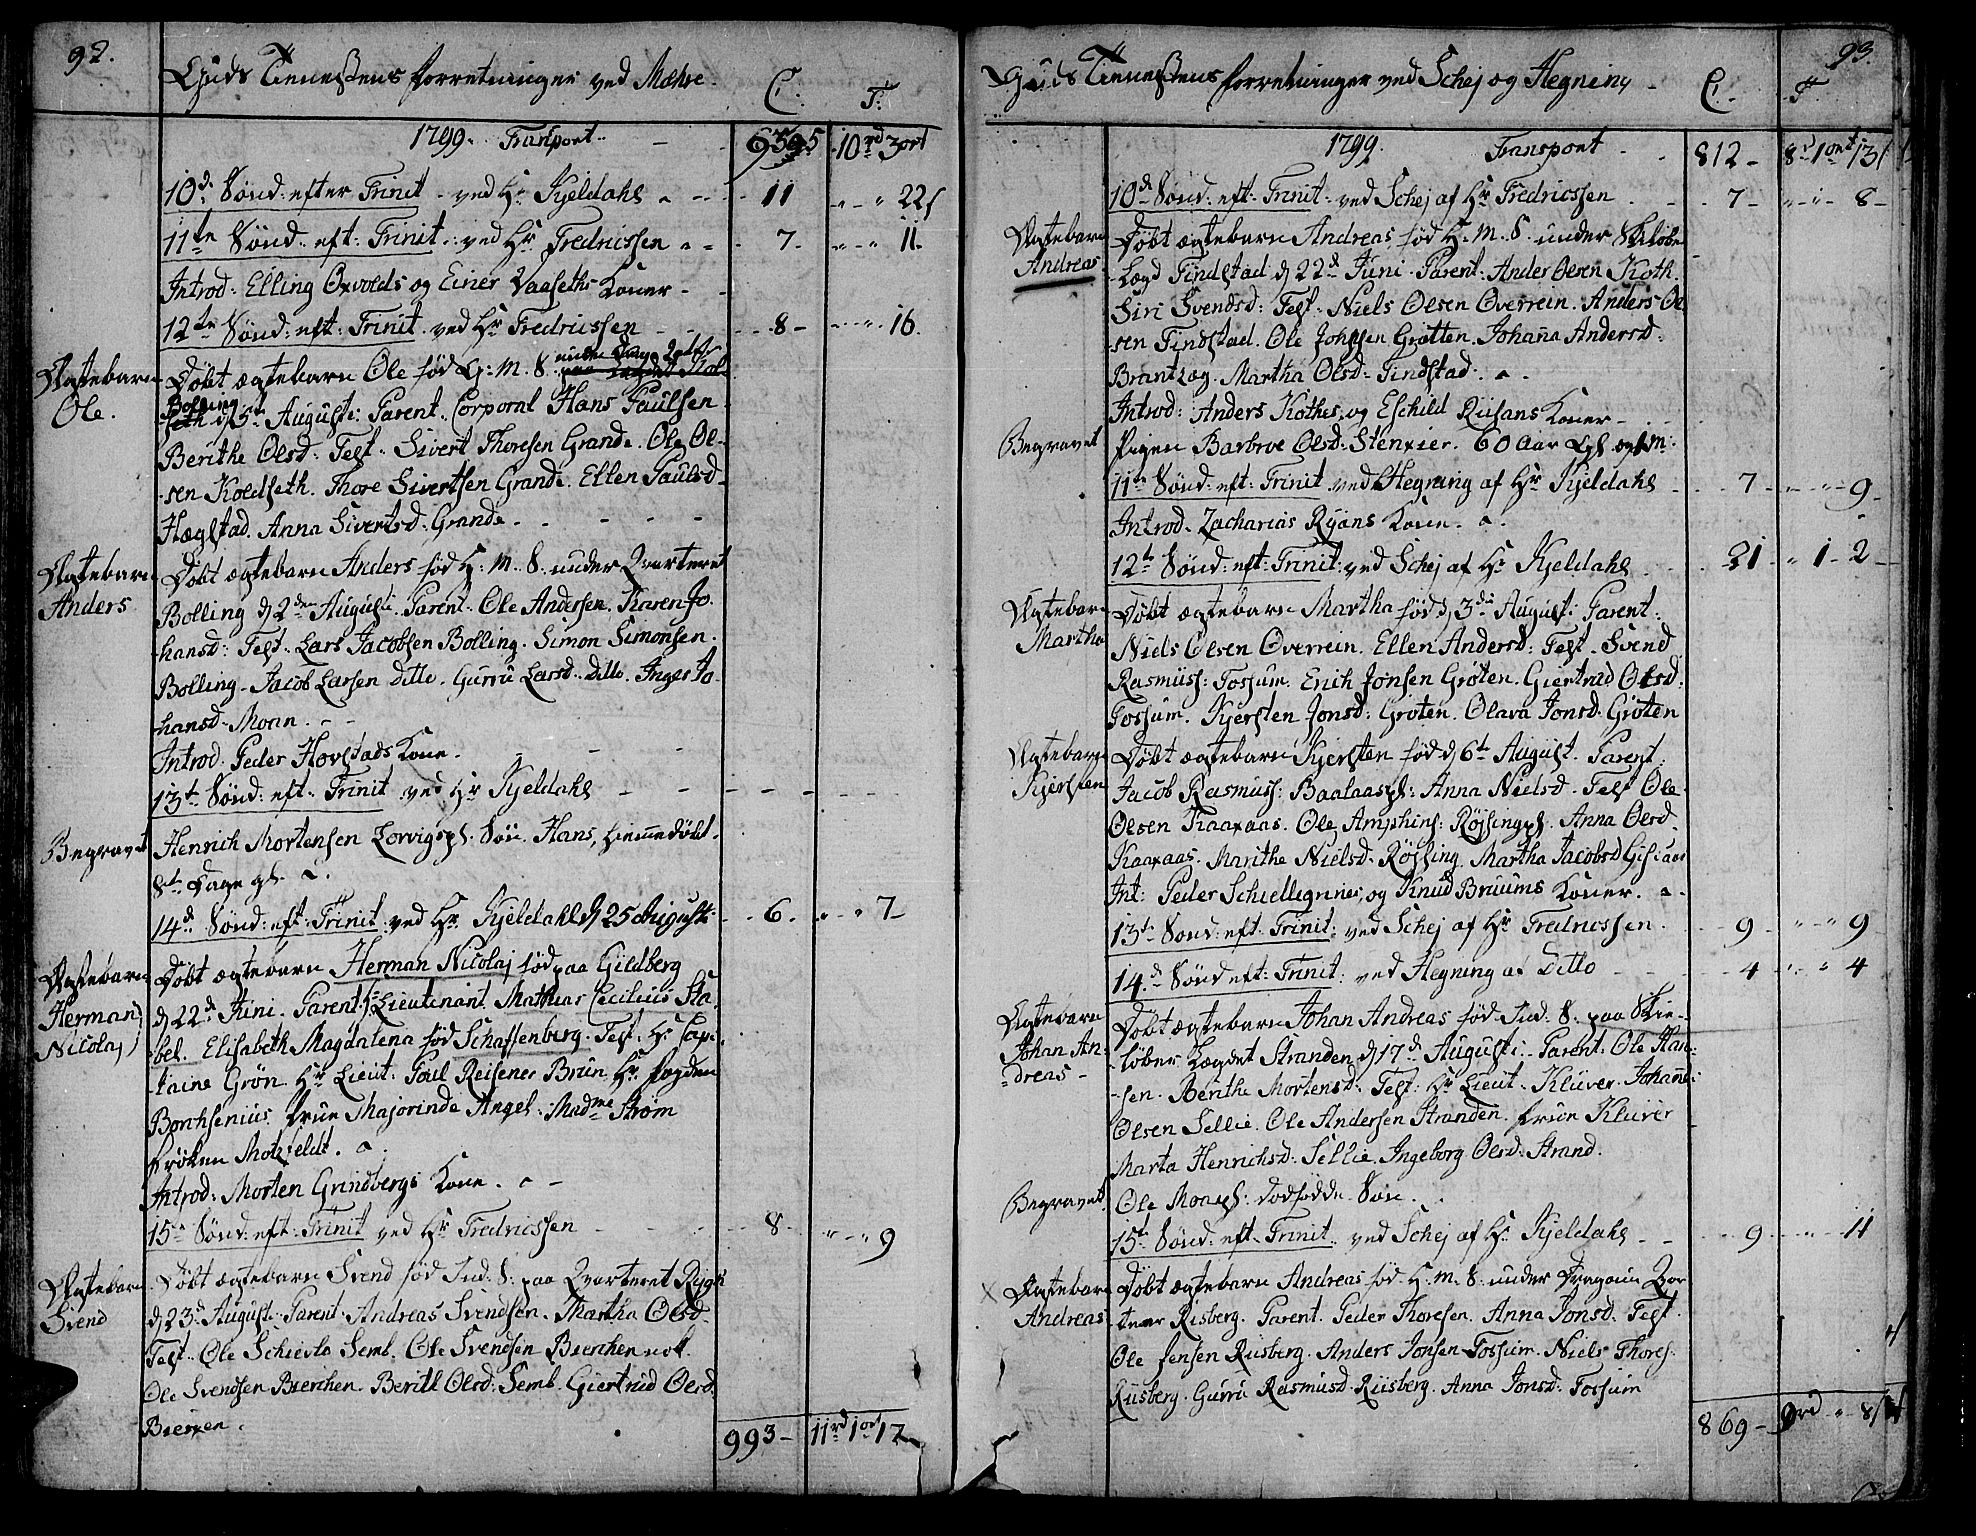 92.
Guds Tienestens forretninger ved Mælve.
C. T.
1799. Transport. 10rd 3ort
10de Sønd: efter Trinit. ved Hr Kjeldahl 11 " " 22ſ
11te Sønd: eft: Trinit: ved Hr Fredricssen 7 " " 11
Introd: Elling Oxvolds og Einer Vaaseths Koner
12te Sønd: eft: Trinit. ved Hr Fredricssen 8 " " 16.
Ægtebarn Døbt ægtebarn Ole fød H: M: S. under
Ole. Bolling d 5te Augusti: Parent. Corporal Hans Paulsen
Berithe Olsd: Test. Sivert Thoresen Grande. Ole Ol-
-sen Koldseth. Thore Sivertsen Grande. Ellen Paulsd
Hægstad. Anna Sivertsd. Grande.
Ægtebarn Døbt ægtebarn Anders fød H: M: S: under Qvarteret
Anders Bolling d 2den Augusti. Parent: Ole Andersen. Karen Jo-
hansd: Test. Lars Jacobsen Bolling. Simon Simonsen.
Bolling. Jacob Larsen ditto. Gurru Larsd. ditto. Inger Jo-
hansd. Moan.
Introd: Peder Hovstads Kone.
13te Sønd: eft: Trinit ved Hr Kjeldahl
Begravet Henrich Mortensen Lorvigspl. Søn. Hans, hiemedøbt.
8te Dage gl.
14de Sønd: eft: Trinit. ved Hr. Kjeldahl d 25 Augusti 6. " " 7
Ægtebarn Døbt ægtebarn Herman Nicolaj fød paa Gildberg
Herman d 22de Juni. Parent: Hr Lieutenant Mathias Cecilius Sta-
Nicolaj bel. Elisabeth Magdalena fød Schaffenberg. Test. Hr Cap-
taine Grøn. Hr Lieut: Poul Reisener Brun Hr fogden
Borchsenius. Frue Majorinde Angel. Madme Strøm
Frøken Motzfeldt.
Introd: Morten Grindbergs Kone.
15de Sønd: eft: Trinit ved Hr Fredricssen 8 " " 9
Ægtebarn Døbt ægtebarn Svend fød Ind: S. paa Qvarteret Rygh
Svend d 23de Augusti. Parent. Andreas Svendsen. Martha Olsd.
Test. Ole Schieslo Semb. Ole Svendsen Bierchen
Ole Svendsen Bierchen. Beritt Olsd: Semb. Giertrud Olsd.
993 11rd 1ort 17
93.
Guds Tienestens forretninger ved Schej og Hegning
C. T
1799. Transport 812 8rd 1ort 13ſ
10de Sønd: eft: Trinit: ved Schej af Hr Fredricssen 7 " " 8
Ægtebarn Døbt ægtebarn Andreas fød H: M: S: under Skiløber
Andreas Lægd Findstad d 22de Juni. Parent: Ander Olsen Koth.
Siri Svendsd: Test. Niels Olsen Overrein. Anders Ol-
-sen Findstad. Ole Johnsen Grøtten. Johanna Andersd:
Brantzæg. Martha Olsd: Findstad.
Introd: Anders Kothes, og Eschild Riisans Koner
Begravet Pigen Barbroe Olsd. Stenkier. 60 Aar
11te Sønd: eft: Trinit. ved Hegning af Hr Kjeldahl 7 " " 9
Introd. Zacharias Ryans Kone.
12te Sønd: eft: Trinit: ved Schej af Hr Kjeldahl 21 " 1 2
Ægtebarn Døbt ægtebarn Martha fød d 3die Augusti: Parent:
Martha Niels Olsen Overrein. Ellen Andersd: Test. Svend
Rasmuss: Fossum. Erich Jonsen Grøten. Giertrud Olsd:
Fossum. Kjersten Jonsd: Grøten. Olava Jonsd. Grøten
Ægtebarn Døbt ægtebarn Kjersten fød d 6te August. Parent:
Kjersten Jacob Rasmuss: Baalaaspl: Anna Nielsd. Test Ole
Olsen Kaaraas. Ole Amphins: Røssingpl. Anna Olsd.
Kaaraas. Marithe Nielsd. Røssing. Martha Jacobsd
Int: Peder Schiellegrines, og Knud Bruums Koner.
13te Sønd: eft: Trinit: ved Schej af Hr Fredricssen. 9 " " 9
14de Sønd eft: Trinit: ved Hegning af ditto 4 " " 4
Ægtebarn Døbt ægtebarn Johan Andreas fød Ind: S. paa Skie-
Johan An- løber Lægdet Stranden d 17de Augusti. Parent. Ole Han-
dreas -sen. Berithe Mortensd: Test: Hr Lieut. Klüver. Johannes
Olsen Sellie. Ole Andersen Stranden. Frue Klüver
Marta Henrichsd: Sellie. Ingeborg Olsd: Strand.
Begravet Ole Moaspl: dødfødde Søn.
15te Sønd: eft: Trinit. ved Schej af Hr Kjeldahl 9 " " 11
Ægtebarn Døbt ægtebarn Andreas fød H: M: S: under Dragoun Qvar
Andreas teer Risberg. Parent. Peder Thoresen. Anna Jonsd. Test.
Ole Jensen Riisberg. Anders Jonsen Fossum. Niels Thores.
Riisberg. Gurru Rasmusd. Riisberg. Anna Jonsd: Fossum
869 9rd " 8ſ